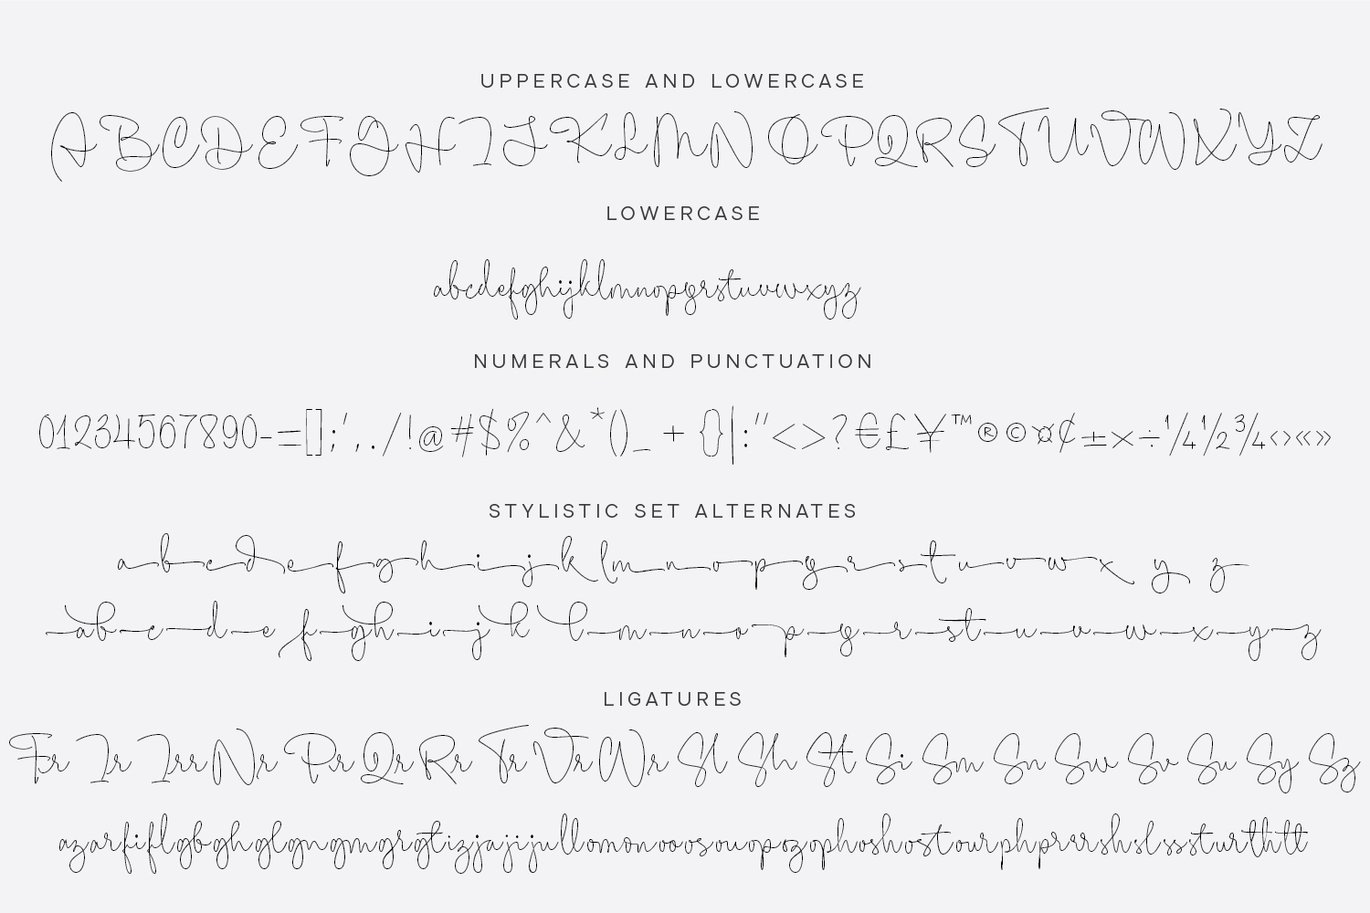 UPPERCASE AND LOWERCASE
ABCDEFGHIJKLMNOPQRSTUVWXYZ
LOWERCASE
abcdefghijklmnopqrstuvwxyz
NUMERALS AND PUNCTUATION
01234567890-=[];',./!@#$%^&*()_ + {}|:"<>?€£¥™®©¤¢±×÷¼½¾‹›«»
STYLISTIC SET ALTERNATES
abcdefghijklmnopqrstuvwxyz
abcdefghijklmnopqrstuvwxyz
LIGATURES
Fr Ir Irr Nr Pr Qr Rr Tr Vr Wr Sl Sh St Si Sm Sn Sw Sv Su Sy Sz